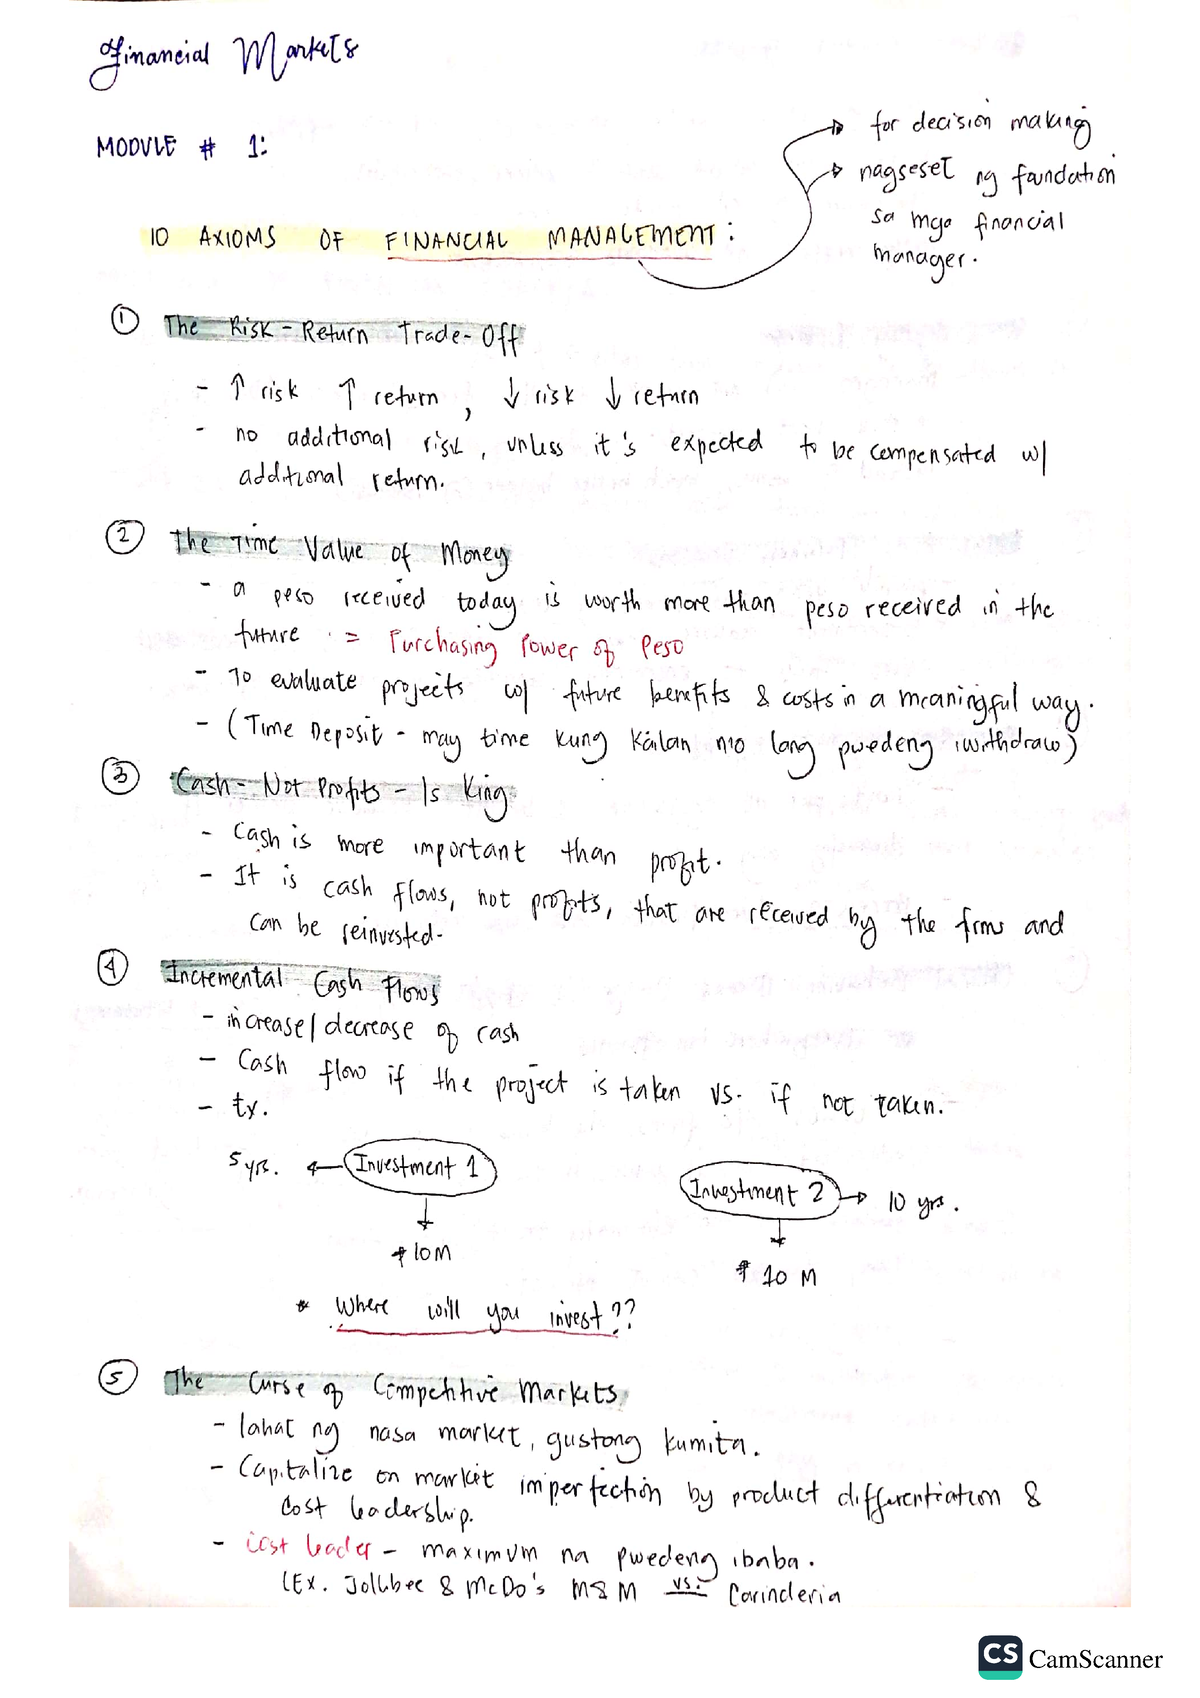 Financial Markets
MODULE # 1:
→ for decision making
→ nagseset ng foundation
sa mga financial
manager.
10 AXIOMS OF FINANCIAL MANAGEMENT:
① The Risk-Return Trade-Off
- ↑ risk ↑ return, ↓ risk ↓ return
- no additional risk, unless it's expected to be compensated w/
additional return.
② The Time Value of Money
- a peso received today is worth more than peso received in the
future = Purchasing Power of Peso
- To evaluate projects w/ future benefits & costs in a meaningful way.
- (Time Deposit - may time kung kailan mo lang pwedeng iwithdraw)
③ Cash-Not Profits - Is King
- Cash is more important than profit.
- It is cash flows, not profits, that are received by the firms and
can be reinvested.
④ Incremental Cash Flows
- increase/decrease of cash
- Cash flow if the project is taken vs. if not taken.
- Ex.
5 yrs. ← Investment 1
Investment 2 → 10 yrs.
₱ 10M
₱ 10 M
* Where will you invest??
⑤ The Curse of Competitive Markets
- lahat ng nasa market, gustong kumita.
- Capitalize on market imperfection by product differentiation &
cost leadership.
- cost leader - maximum na pwedeng ibaba.
(Ex. Jollibee & McDo's M&M vs. Carinderia
CS CamScanner